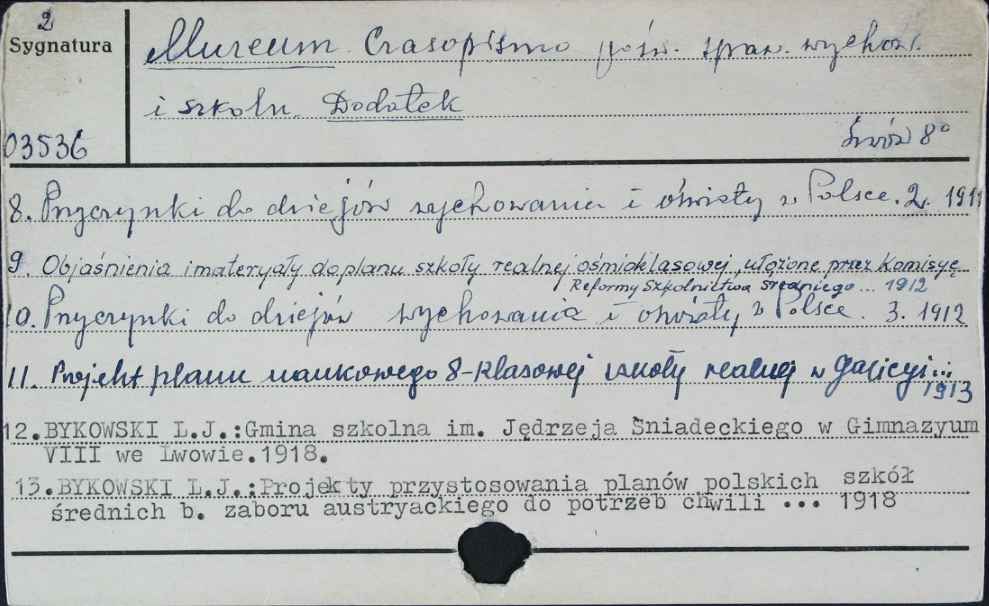 2
Sygnatura
Muzeum. Czasopismo pośw. spraw. wychow.
i szkoln. Dodatek
03536
Lwów 8°
8. Przyczynki do dziejów wychowania i oświaty w Polsce. 2. 1911
9. Objaśnienia i materyały do planu szkoły realnej ośmioklasowej, ułożone przez Komisyę
Reformy Szkolnictwa średniego ... 1912
10. Przyczynki do dziejów wychowania i oświaty w Polsce. 3. 1912
11. Projekt planu naukowego 8-klasowej szkoły realnej w Galicyi...
1913
12. BYKOWSKI L.J.:Gmina szkolna im. Jędrzeja Śniadeckiego w Gimnazyum
VIII we Lwowie.1918.
13. BYKOWSKI L.J.:Projekty przystosowania planów polskich szkół
średnich b. zaboru austryackiego do potrzeb chwili ... 1918